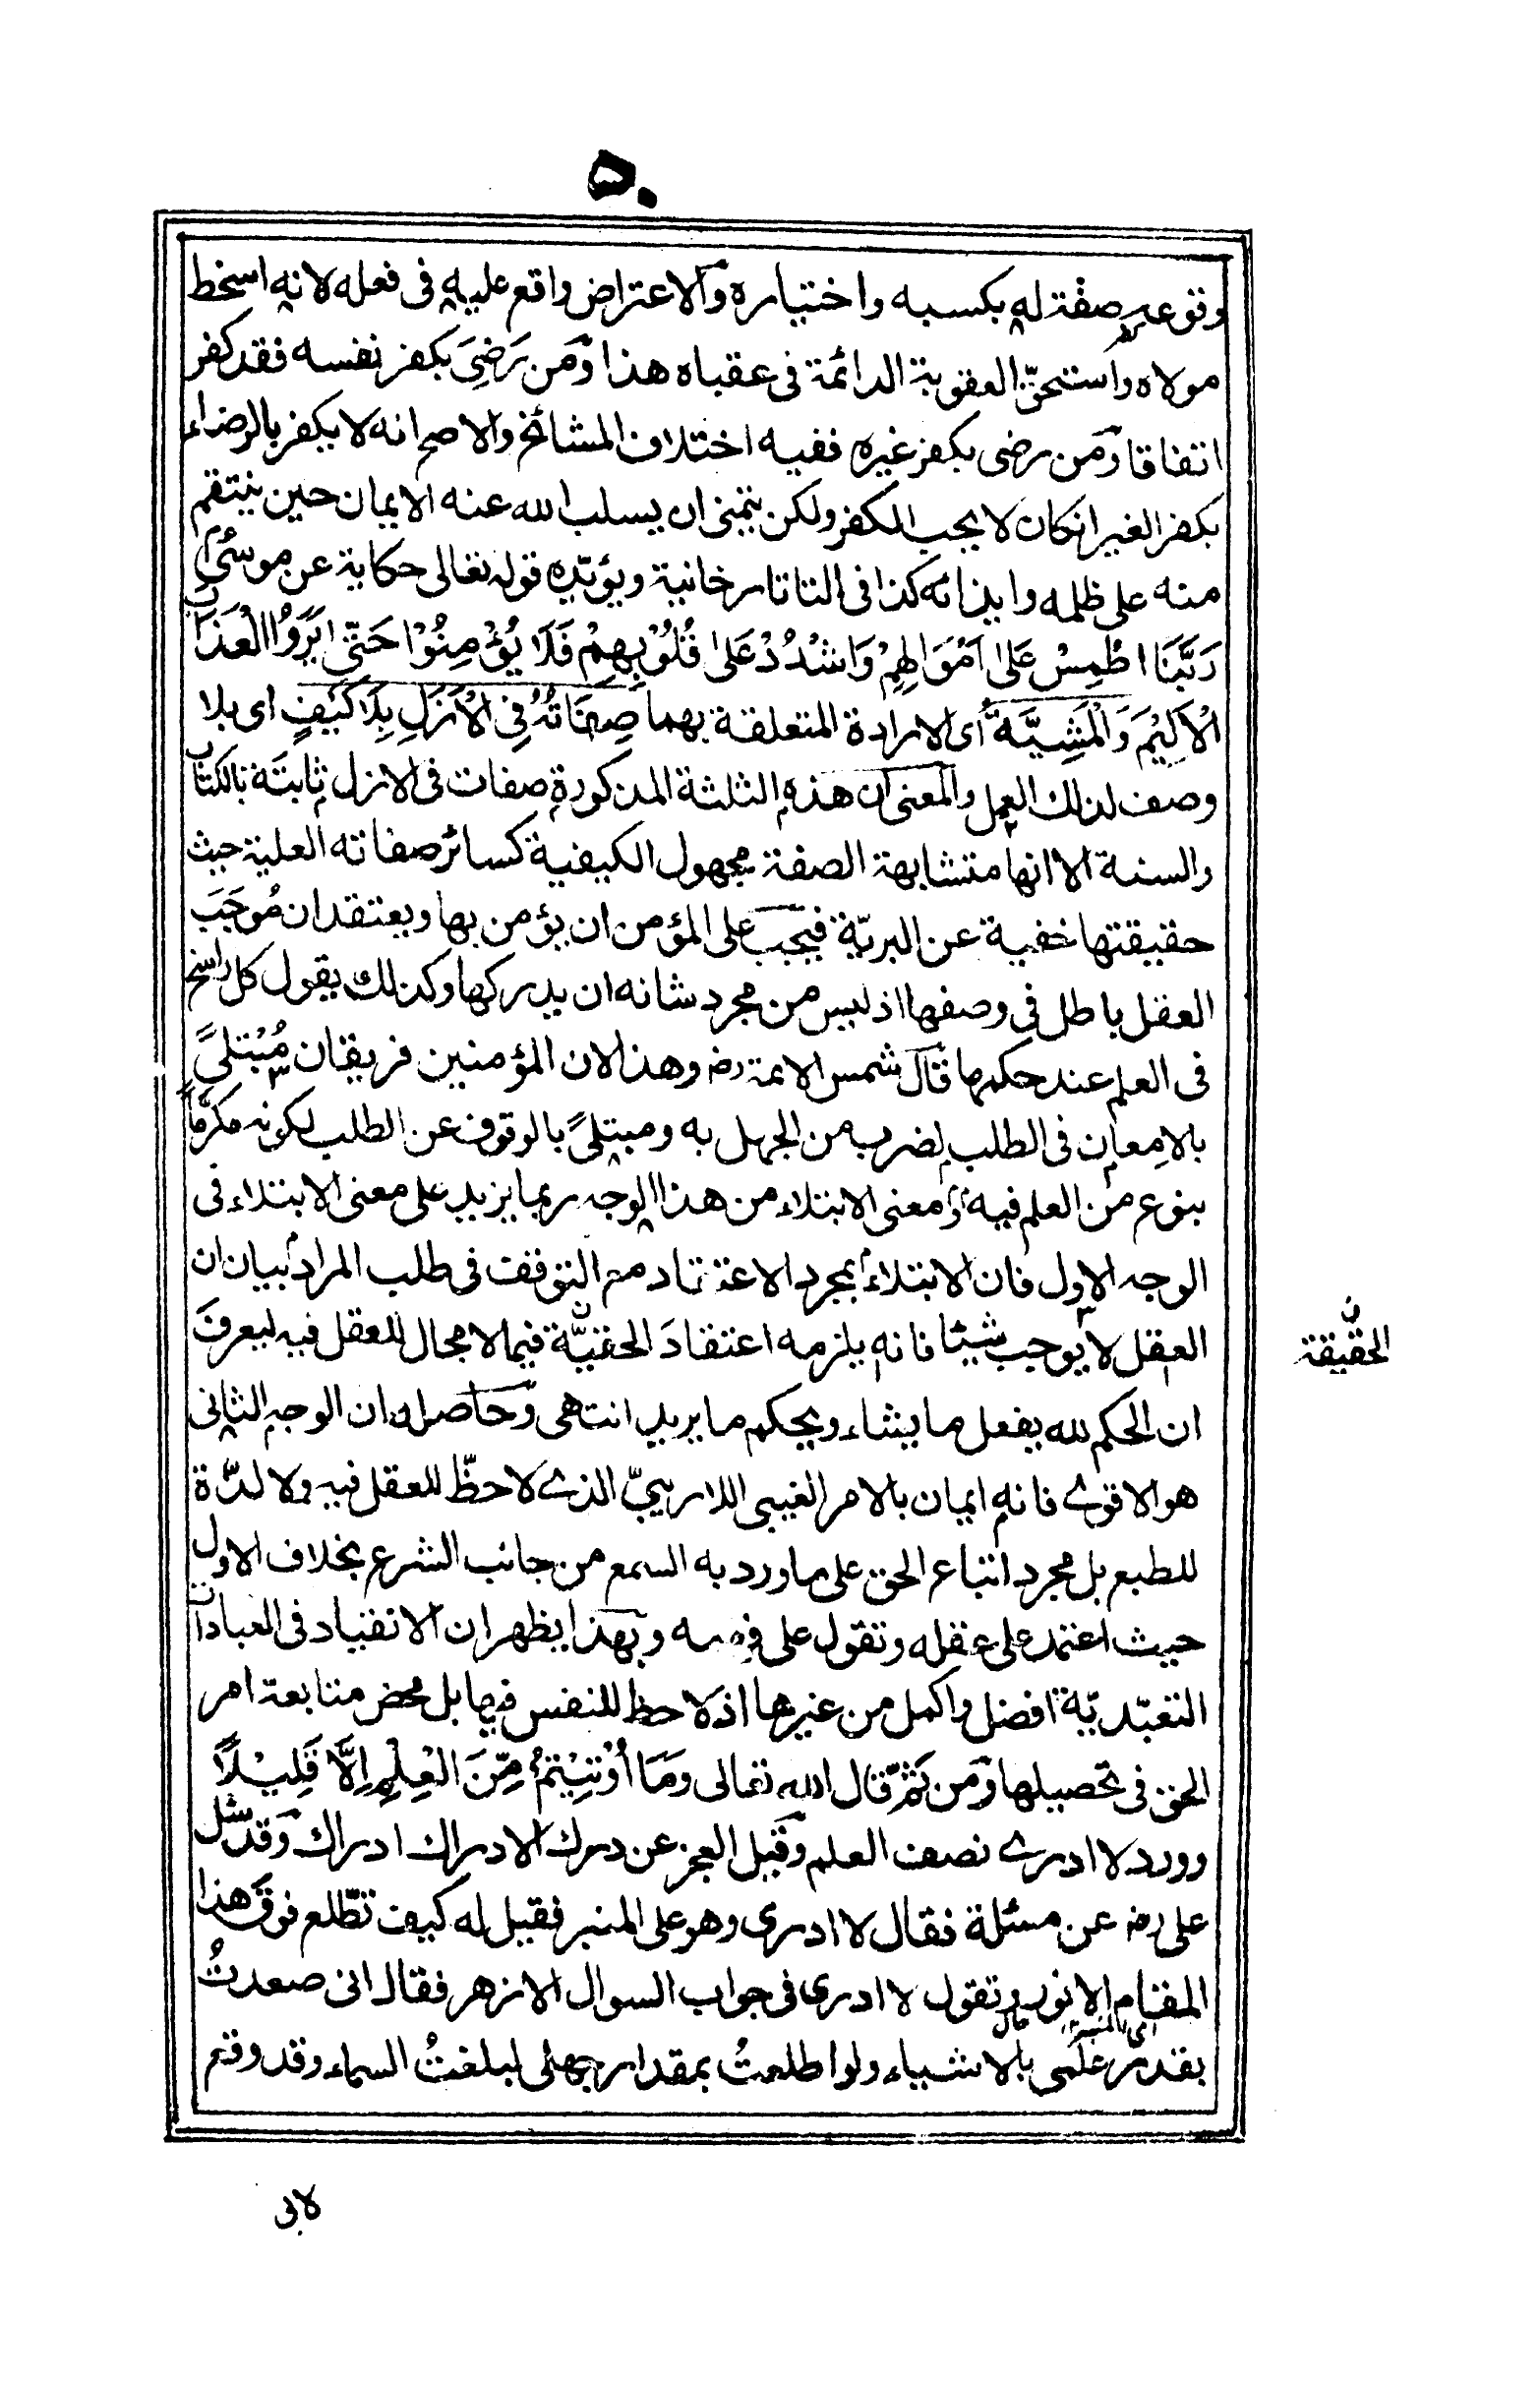 ٥٠
وقوعه صفة له بكسبه واختياره والاعتراض واقع عليه فى فعله لانه اسخط
مولاه واستحقّ العقوبة الدائمة فى عقباه هذا ومن رَضِىَ بكفر نفسه فقد كفر
اتفاقا ومن رضى بكفر غيره ففيه اختلاف المشائخ والاصح انه لا يكفر بالرضاء
بكفر الغير انكان لا يحب الكفر ولكن يتمنى ان يسلب الله عنه الايمان حين ينتقم
منه على ظلمه وايذائه كذا فى التاتارخانية ويؤيّده قوله تعالى حكاية عن موسىٰ
رَبَّنَا اطْمِسْ عَلىٰ اَمْوَالِهِمْ وَاشْدُدْ عَلىٰ قُلُوْبِهِمْ فَلَا يُؤْمِنُوْا حَتّٰى يَرَوُا الْعَذَابَ
الْاَلِيْمَ وَالْمَشِيَّة اى الارادة المتعلقة بهما صِفَاتُهُ فِى الْاَزَلِ بِلَا كَيْفٍ اى بلا
وصف لذلك العمل والمعنى ان هذه الثلثة المذكورة صفات فى الازل ثابتة بالكتاب
والسنة الا انها متشابهة الصفة مجهول الكيفية كسائر صفاته العلية حيث
حقيقتها خفية عن البريّة فيجب على المؤمن ان يؤمن بها ويعتقد ان مُوجَبَ
العقل باطل فى وصفها اذ ليس من مجرد شانه ان يدركها وكذلك يقول كل راسخ
فى العلم عند حكمها قال شمس الائمة رضـ وهذا لان المؤمنين فريقان مُبْتلىً
بالامعان فى الطلب لضرب من الجهل به ومبتلىً بالوقوف عن الطلب لكونه مكرّماً
بنوع من العلم فيه ومعنى الابتلاء من هذا الوجه ربما يزيد على معنى الابتلاء فى
الوجه الاول فان الابتلاء بمجرد الاعتقاد مع التوقف فى طلب المراد بيان ان
العقل لا يوجب شيئا فانه يلزمه اعتقادَ الحقيّة فيما لا مجال للعقل فيه ليعرفَ
ن
الحقيقة
ان الحكم لله يفعل ما يشاء ويحكم ما يريد انتهى وحاصله ان الوجه الثانى
هو الاقوى فانه ايمان بالامر الغيبى اللاريبىّ الذى لا حظّ للعقل فيه ولا لذّة
للطبع بل مجرد اتباع الحق على ما ورد به السمع من جانب الشرع بخلاف الاول
حيث اعتمد على عقله وتقول على فهمه وبهذا يظهر ان الانقياد فى العبادات
التعبّديّة افضل واكمل من غيرها اذ لا حظ للنفس فيها بل محض متابعة امر
الحق فى تحصيلها ومن ثمّ قال الله تعالى وَمَا اُوْتِيْتُمْ مِّنَ الْعِلْمِ اِلَّا قَلِيْلًا
وورد لا ادرى نصف العلم وقيل العجز عن درك الادراك ادراك وقد سئل
على رضـ عن مسئلة فقال لا ادرى وهو على المنبر فقيل له كيف تطّلع فوق هذا
المقام الانور وتقول لا ادرى فى جواب السوال الازهر فقال انى صعدتُ
بقدر علمى بالاشياء ولو اطلعتُ بمقدار جهلى لبلغتُ السماء وقد وقع
لابى